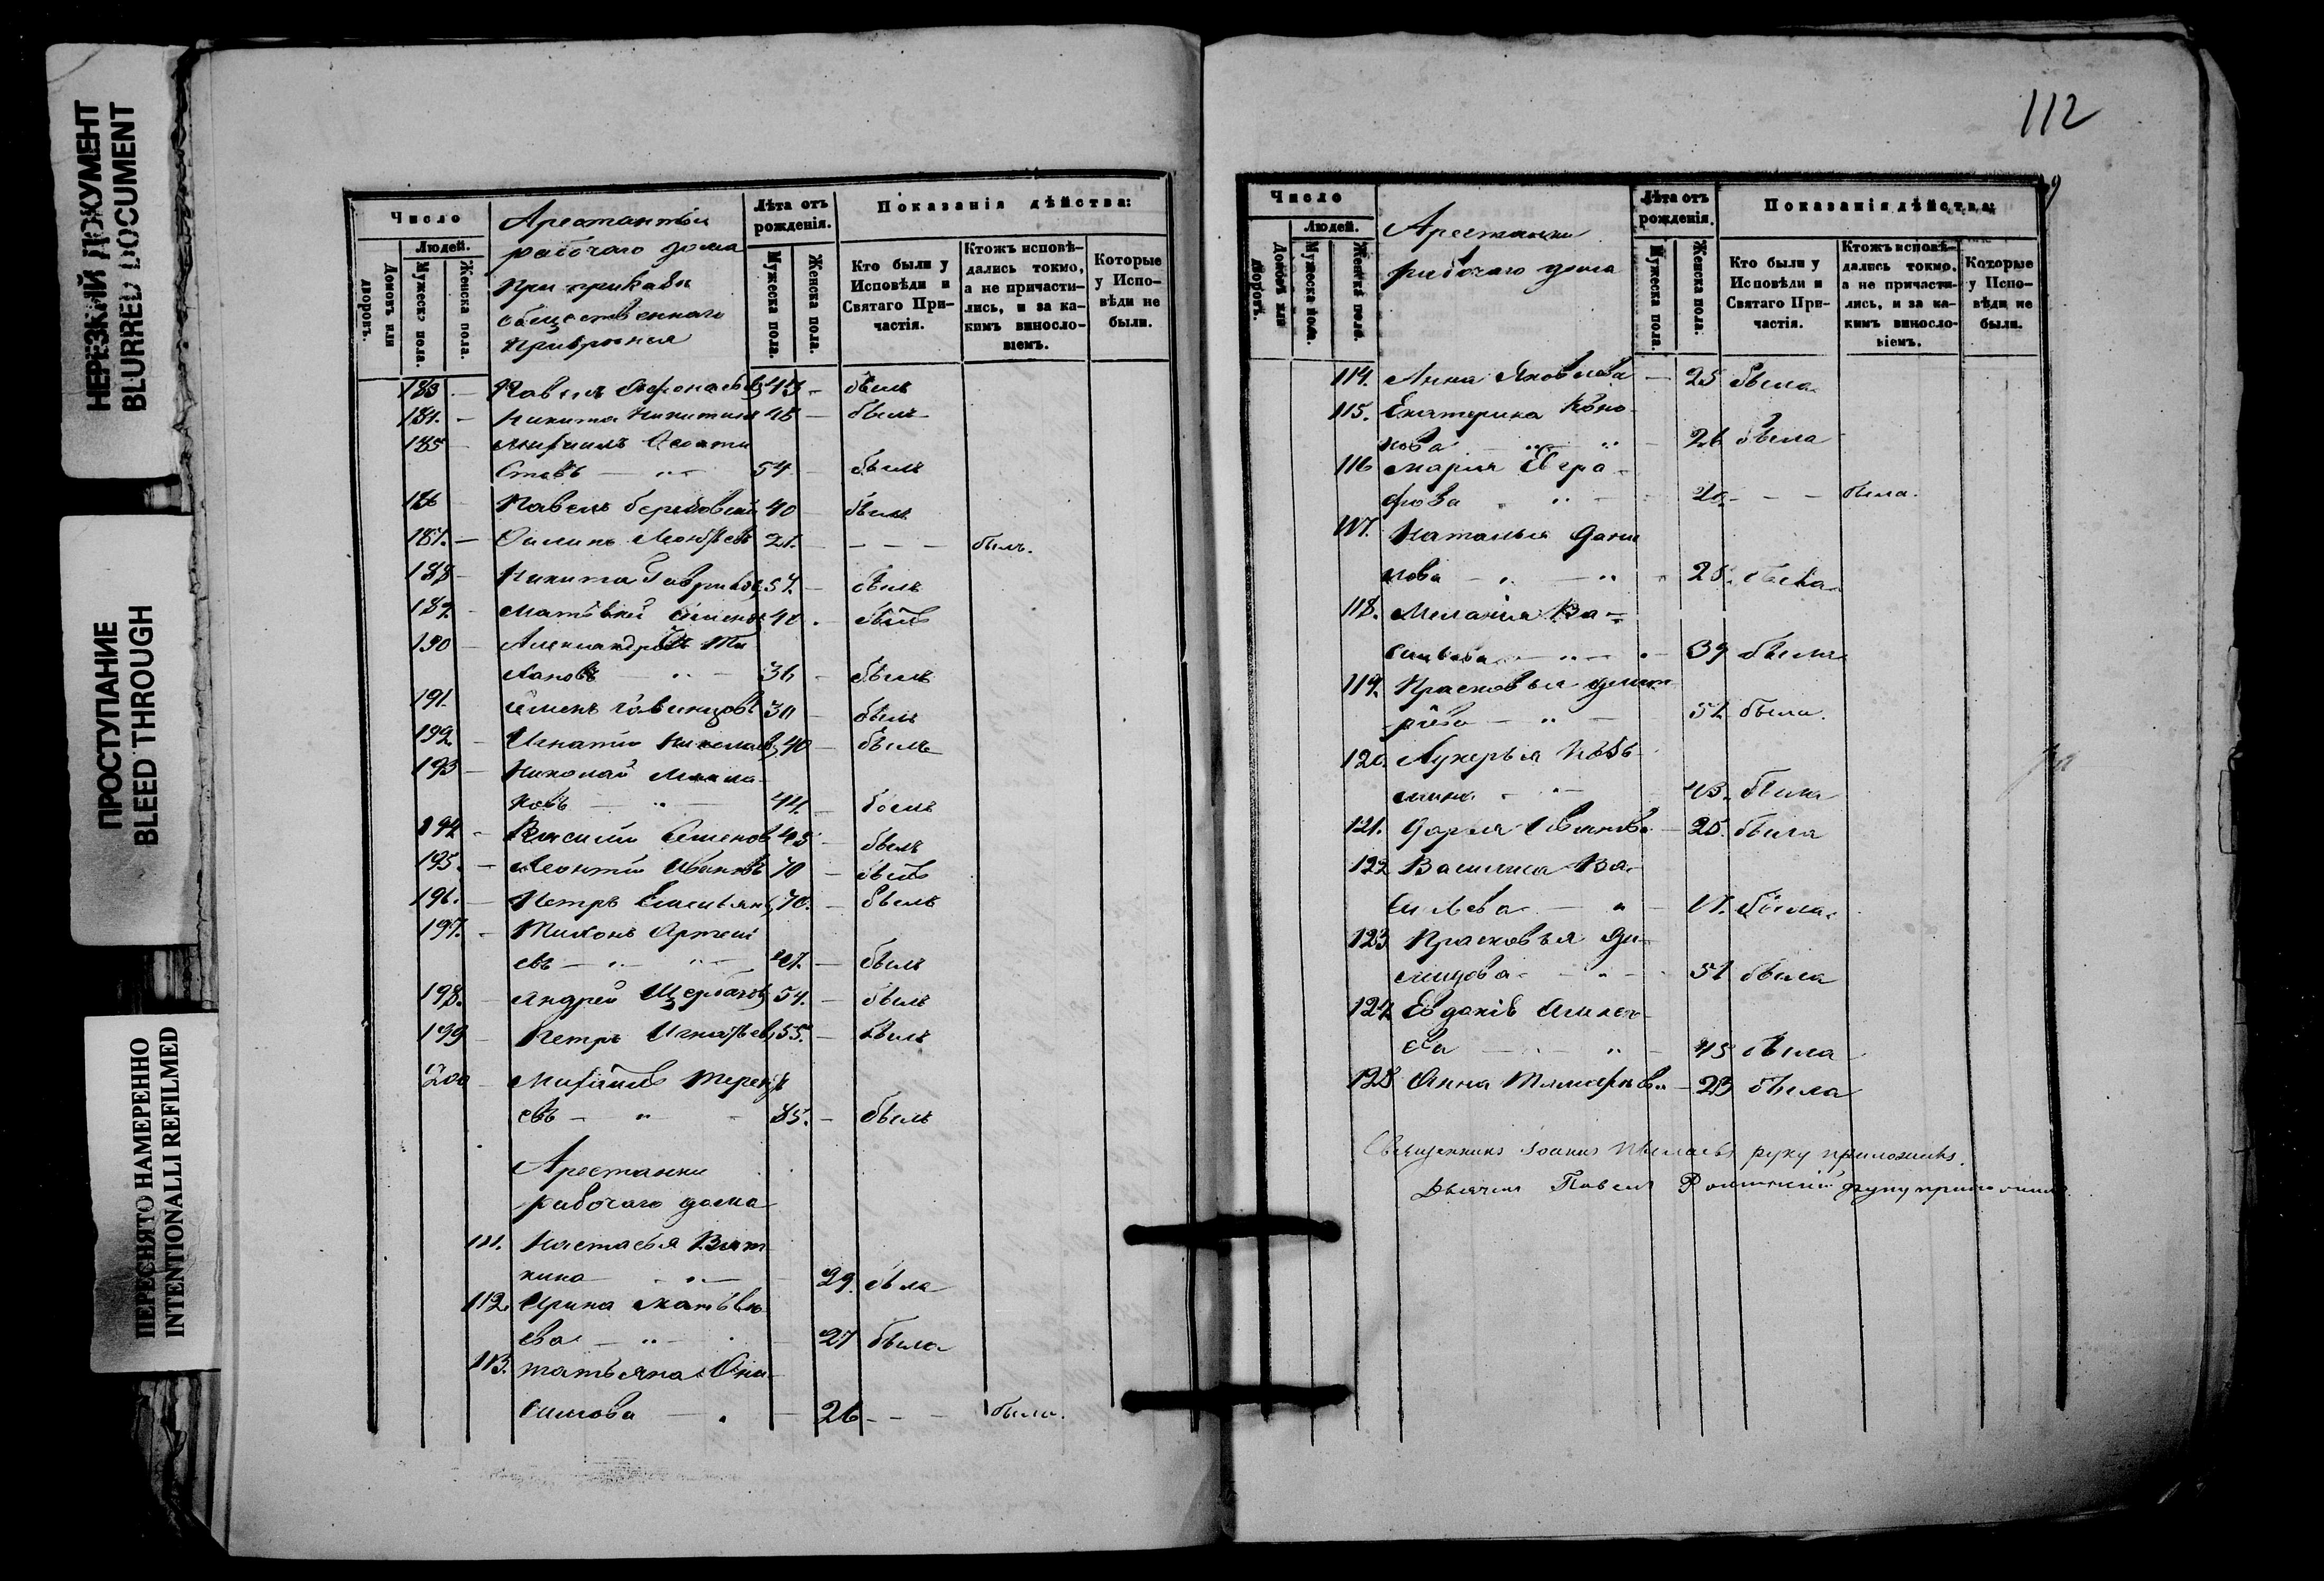 НЕРЕЗКИЙ ДОКУМЕНТ
BLURRED DOCUMENT
ПРОСТУПАНИЕ
BLEED THROUGH
ПЕРЕСНЯТО НАМЕРЕННО
INTENTIONALLI REFILMED
Число
Людей.
Домовъ или дворовъ.
Мужеска пола.
Женска пола.
Арестантъи
рабочаго дома
при приказѣ
общественнаго
призрѣнія
Лѣта отъ рожденія.
Мужеска пола.
Женска пола.
Показанія дѣйства:
Кто были у Исповѣди и Святаго Причастія.
Ктожъ исповѣдались токмо, а не причастились, и за какимъ винословіемъ.
Которые у Исповѣди не были.
183 — Павелъ Афонасьевъ 43 — былъ
184. — Никита Никитинъ 48 — былъ
185 —
54 — былъ
186 Павелъ 40 — былъ
187. — 21. — — — былъ.
188 — Никита Гаврилов 57. — былъ
189. — Матвѣй Семенов 40 — былъ
190 — Александръ
36 — былъ
191. Семенъ 30 — былъ
192 — Игнатій Николаевъ 40 — былъ
193 — Николай
ковъ — " — 44 — былъ
194 — Василій Семеновъ 45 — былъ
195. — Леонтій Ивановъ 70 — былъ
196. — Петръ Емельянов 70. — былъ
197. — Тихонъ Артемь
евъ — " — 47. — былъ
198. — Андрей Щербаков 54. — былъ
199 Петръ Игнатьев 55. — былъ
200 — Михаилъ Терентьъ
евъ — " — 85. — былъ
Арестанки
рабочаго дома
111. Настасья Вят
кина — " — 29. была
112. Ирина Матвѣе
ева — " — 27 была
113. Татьяна Они
симова — " — 26 — — — была.
112
9
Число
Людей.
Домовъ или дворовъ.
Мужеска пола.
Женска пола.
Арестанки
рабочаго дома
Лѣта отъ рожденія.
Мужеска пола.
Женска пола.
Показанія дѣйства:
Кто были у Исповѣди и Святаго Причастія.
Ктожъ исповѣдались токмо, а не причастились, и за какимъ винословіемъ.
Которые у Исповѣди не были.
114. Анна Яковлева — 25 была
115. Екатерина Коно
нова — " — " — 26 была
116 Марья
фова — " — 20 — — — была.
117. Наталья Дани
лова — " — " 28. была
118. Меланія Ва-
сильева — " — 39 была
119. Прасковья Дмит
рева — " — 52 была.
120. Лукерья Кузь
мина — " — 43. была
121. Дарья Иванова — 25. была
122 Василиса Ва-
сильева — " — 17. была
123 Прасковья Де-
мидова — " — 51 была
124 Евдокія Алексѣ
ева — " — 45 была
125 Анна — 23 была
Священникъ Іоаннъ руку приложилъ.
Дьячекъ Павелъ руку приложилъ